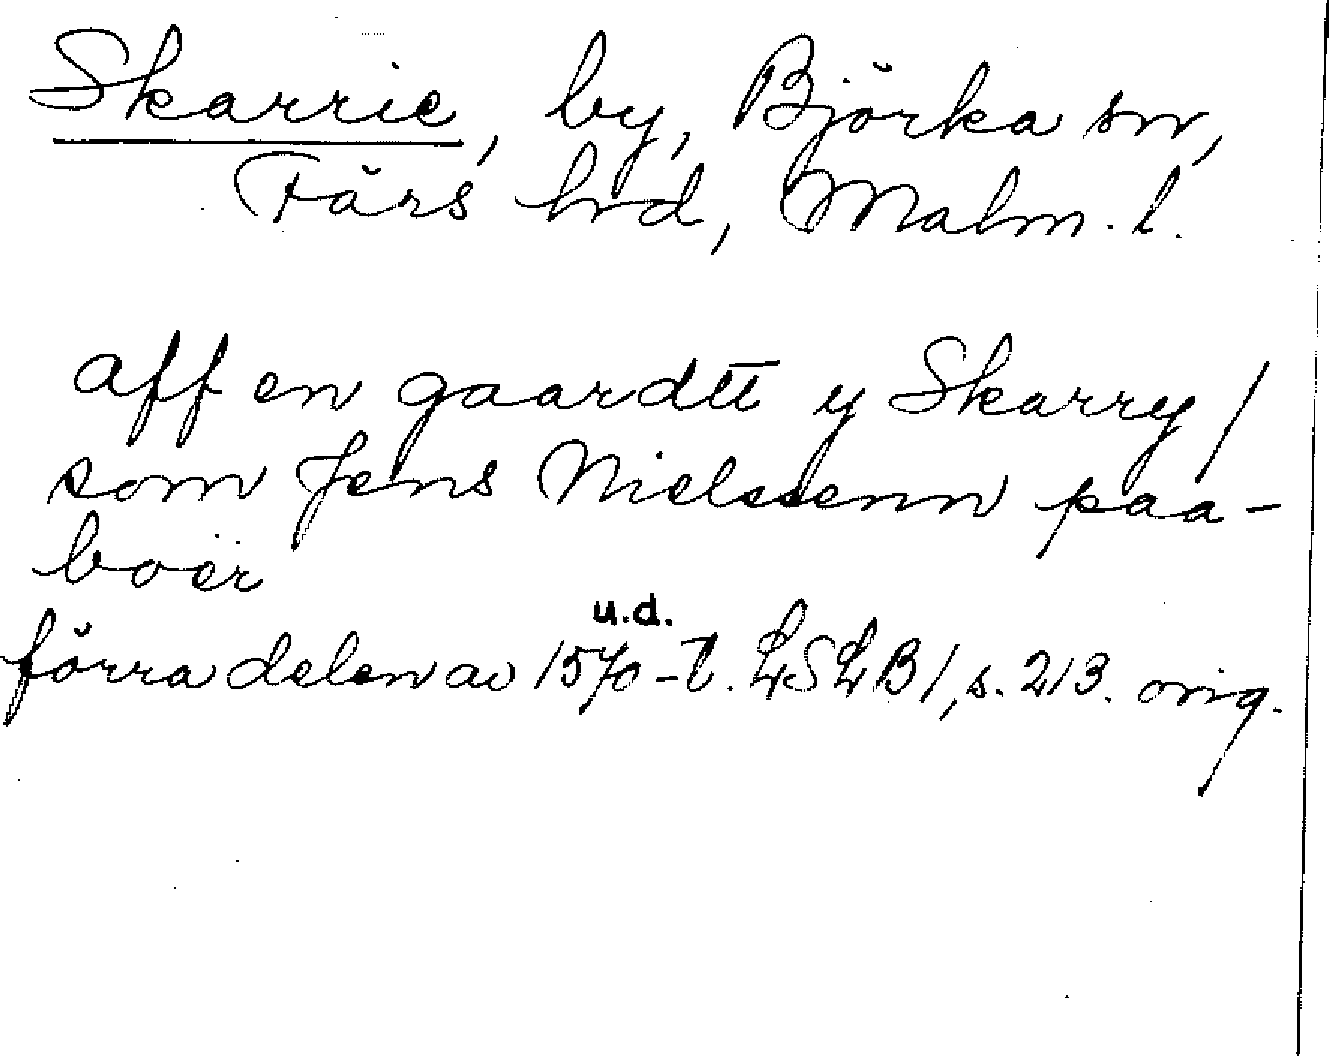 Skarrie, by, Björka sn,
Färs hrd, Malm. l.
aff en gaardtt y Skarry /
som Jens Nielssenn paa-
boër
u.d.
förra delen av 1570-t. LSLB 1, s. 213. orig.